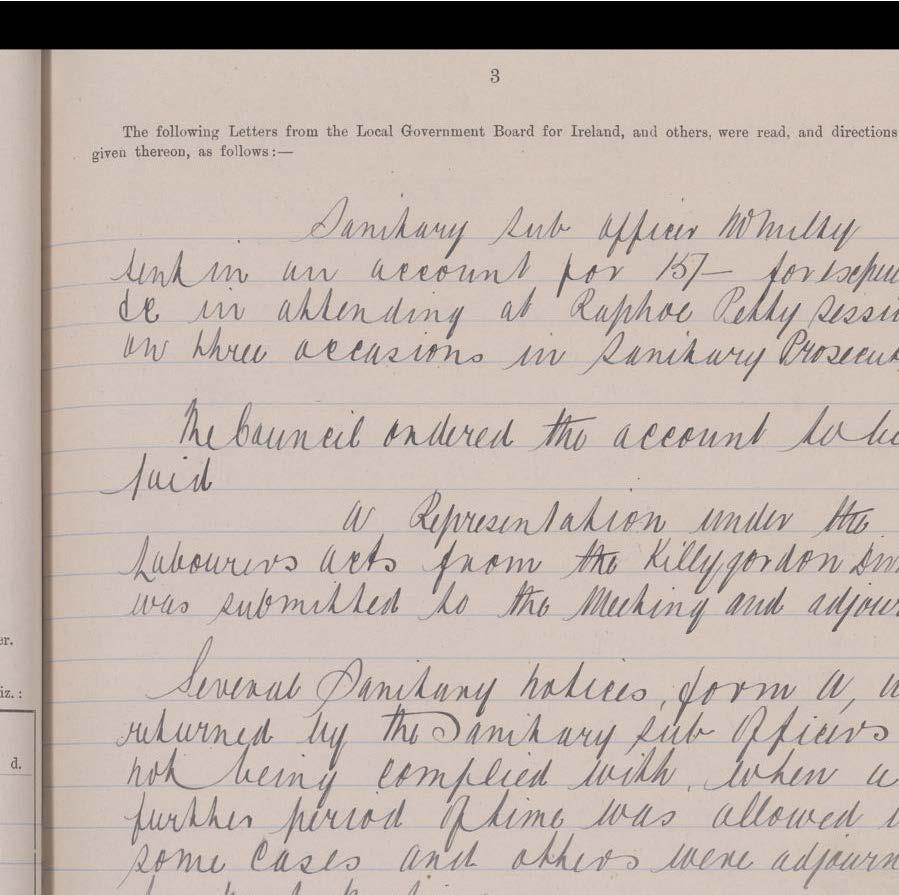 3
The following Letters from the Local Government Board for Ireland, and others, were read, and directions
given thereon, as follows:—
Sanitary Sub Officer
sent in an account for 15/–
&c in attending at Raphoe Petty Sessi
on three occasions in Sanitary Prosecut
The Council ordered the account to be
paid
A Representation under the
Labourers Acts from the Killygordon Div
was submitted to the Meeting and adjour
Several Sanitary notices, form A, w
returned by the Sanitary Sub Officers
not being complied with, when a
further period of time was allowed i
some cases and others were adjourn
er.
iz.:
d.